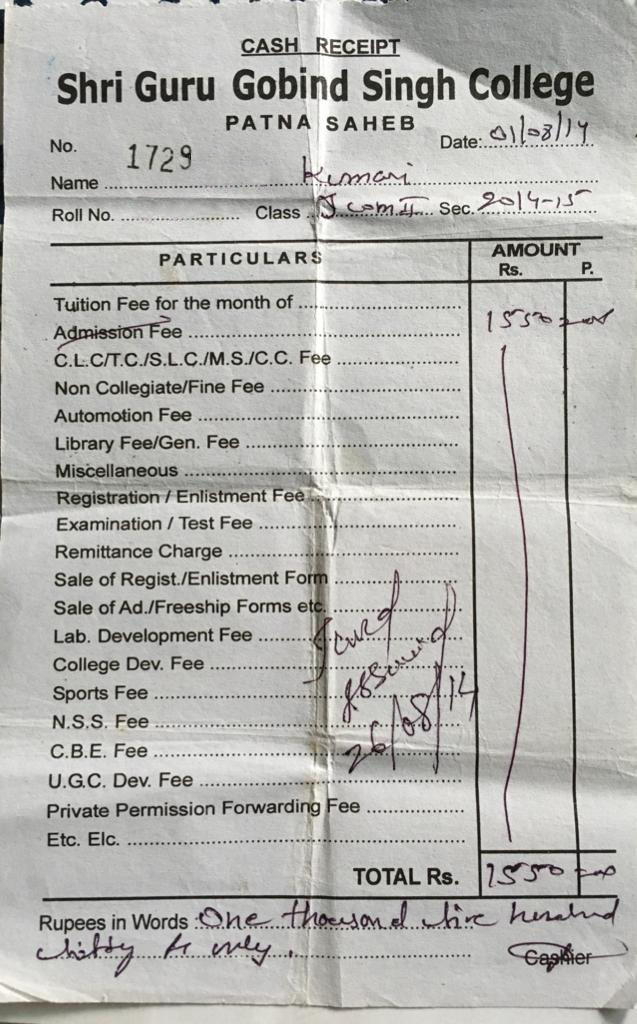 CASH RECEIPT
Shri Guru Gobind Singh College
PATNA SAHEB
No. 1729 Date: 01/08/14
Name Kumari
Roll No. Class I com II Sec. 2014-15
PARTICULARS AMOUNT
Rs. P.
Tuition Fee for the month of
Admission Fee 1550=00
C.L.C/T.C./S.L.C./M.S./C.C. Fee
Non Collegiate/Fine Fee
Automotion Fee
Library Fee/Gen. Fee
Miscellaneous
Registration / Enlistment Fee
Examination / Test Fee
Remittance Charge
Sale of Regist./Enlistment Form
Sale of Ad./Freeship Forms etc.
Lab. Development Fee
College Dev. Fee
Sports Fee
N.S.S. Fee
26/08/14
C.B.E. Fee
U.G.C. Dev. Fee
Private Permission Forwarding Fee
Etc. Elc.
TOTAL Rs. 1550=00
Rupees in Words One thousand five hundred
fifty only.
Cashier